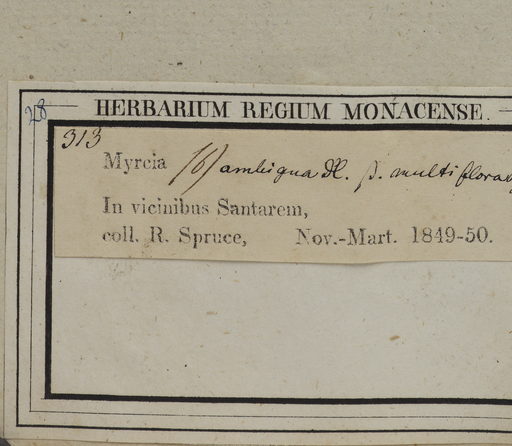 28
HERBARIUM REGIUM MONACENSE.
313
Myrcia (6) ambigua DC. β. multiflora
In vicinibus Santarem,
coll. R. Spruce, Nov.-Mart. 1849-50.